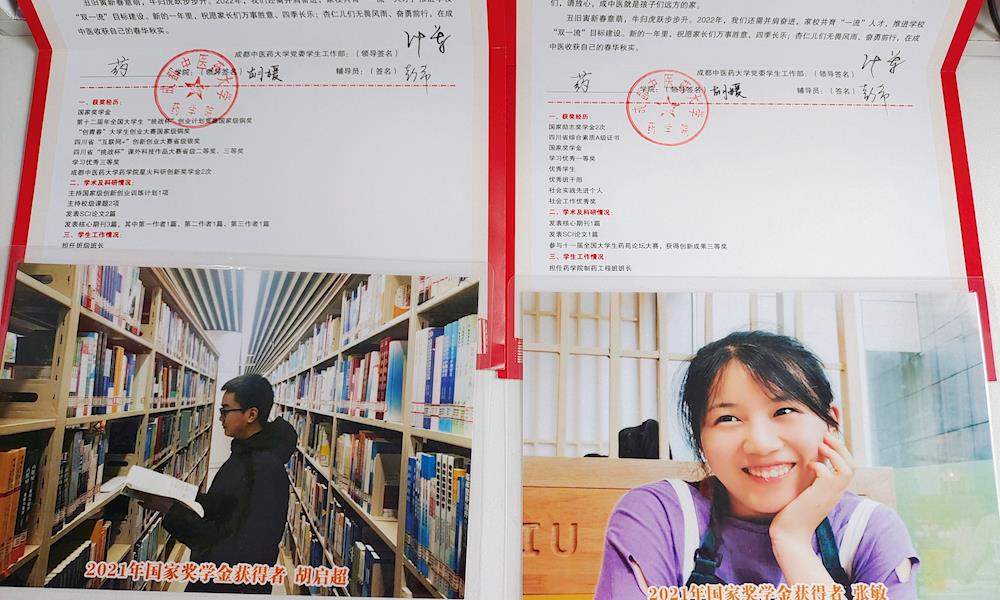 “双一流”目标建设。新的一年里，祝愿家长们万事胜意、四季长乐；杏仁儿们无畏风雨、奋勇前行，在成
中医收获自己的春华秋实。
成都中医药大学党委学生工作部：（领导签名）
药 学院：（领导签名） 胡媛 辅导员：（签名）
一、获奖经历：
国家奖学金
第十二届年全国大学生“挑战杯”创业计划竞赛国家级铜奖
“创青春”大学生创业大赛国家级铜奖
四川省“互联网+”创新创业大赛省级银奖
四川省“挑战杯”课外科技作品大赛省级二等奖、三等奖
学习优秀三等奖
成都中医药大学药学院星火科研创新奖学金2次
二、学术及科研情况：
主持国家级创新创业训练计划1项
主持校级课题2项
发表SCI论文2篇
发表核心期刊3篇，其中第一作者1篇、第二作者1篇、第三作者1篇
三、学生工作情况：
担任班级班长
2021年国家奖学金获得者 胡启超
们，请放心，成中医就是孩子们远方的家。
丑旧寅新春意萌，牛归虎跃步步升。2022年，我们还需并肩奋进，家校共育“一流”人才，推进学校
“双一流”目标建设。新的一年里，祝愿家长们万事胜意、四季长乐；杏仁儿们无畏风雨、奋勇前行，在成
中医收获自己的春华秋实。
成都中医药大学党委学生工作部：（领导签名）
药 学院：（领导签名） 胡媛 辅导员：（签名）
一、获奖经历：
国家励志奖学金2次
四川省综合素质A级证书
国家奖学金
学习优秀一等奖
优秀学生
优秀班干部
社会实践先进个人
社会工作优秀奖
二、学术及科研情况：
发表核心期刊1篇
发表SCI论文1篇
参与十一届全国大学生药苑论坛大赛，获得创新成果三等奖
三、学生工作情况：
担任药学院制药工程班班长
2021年国家奖学金获得者 张敏